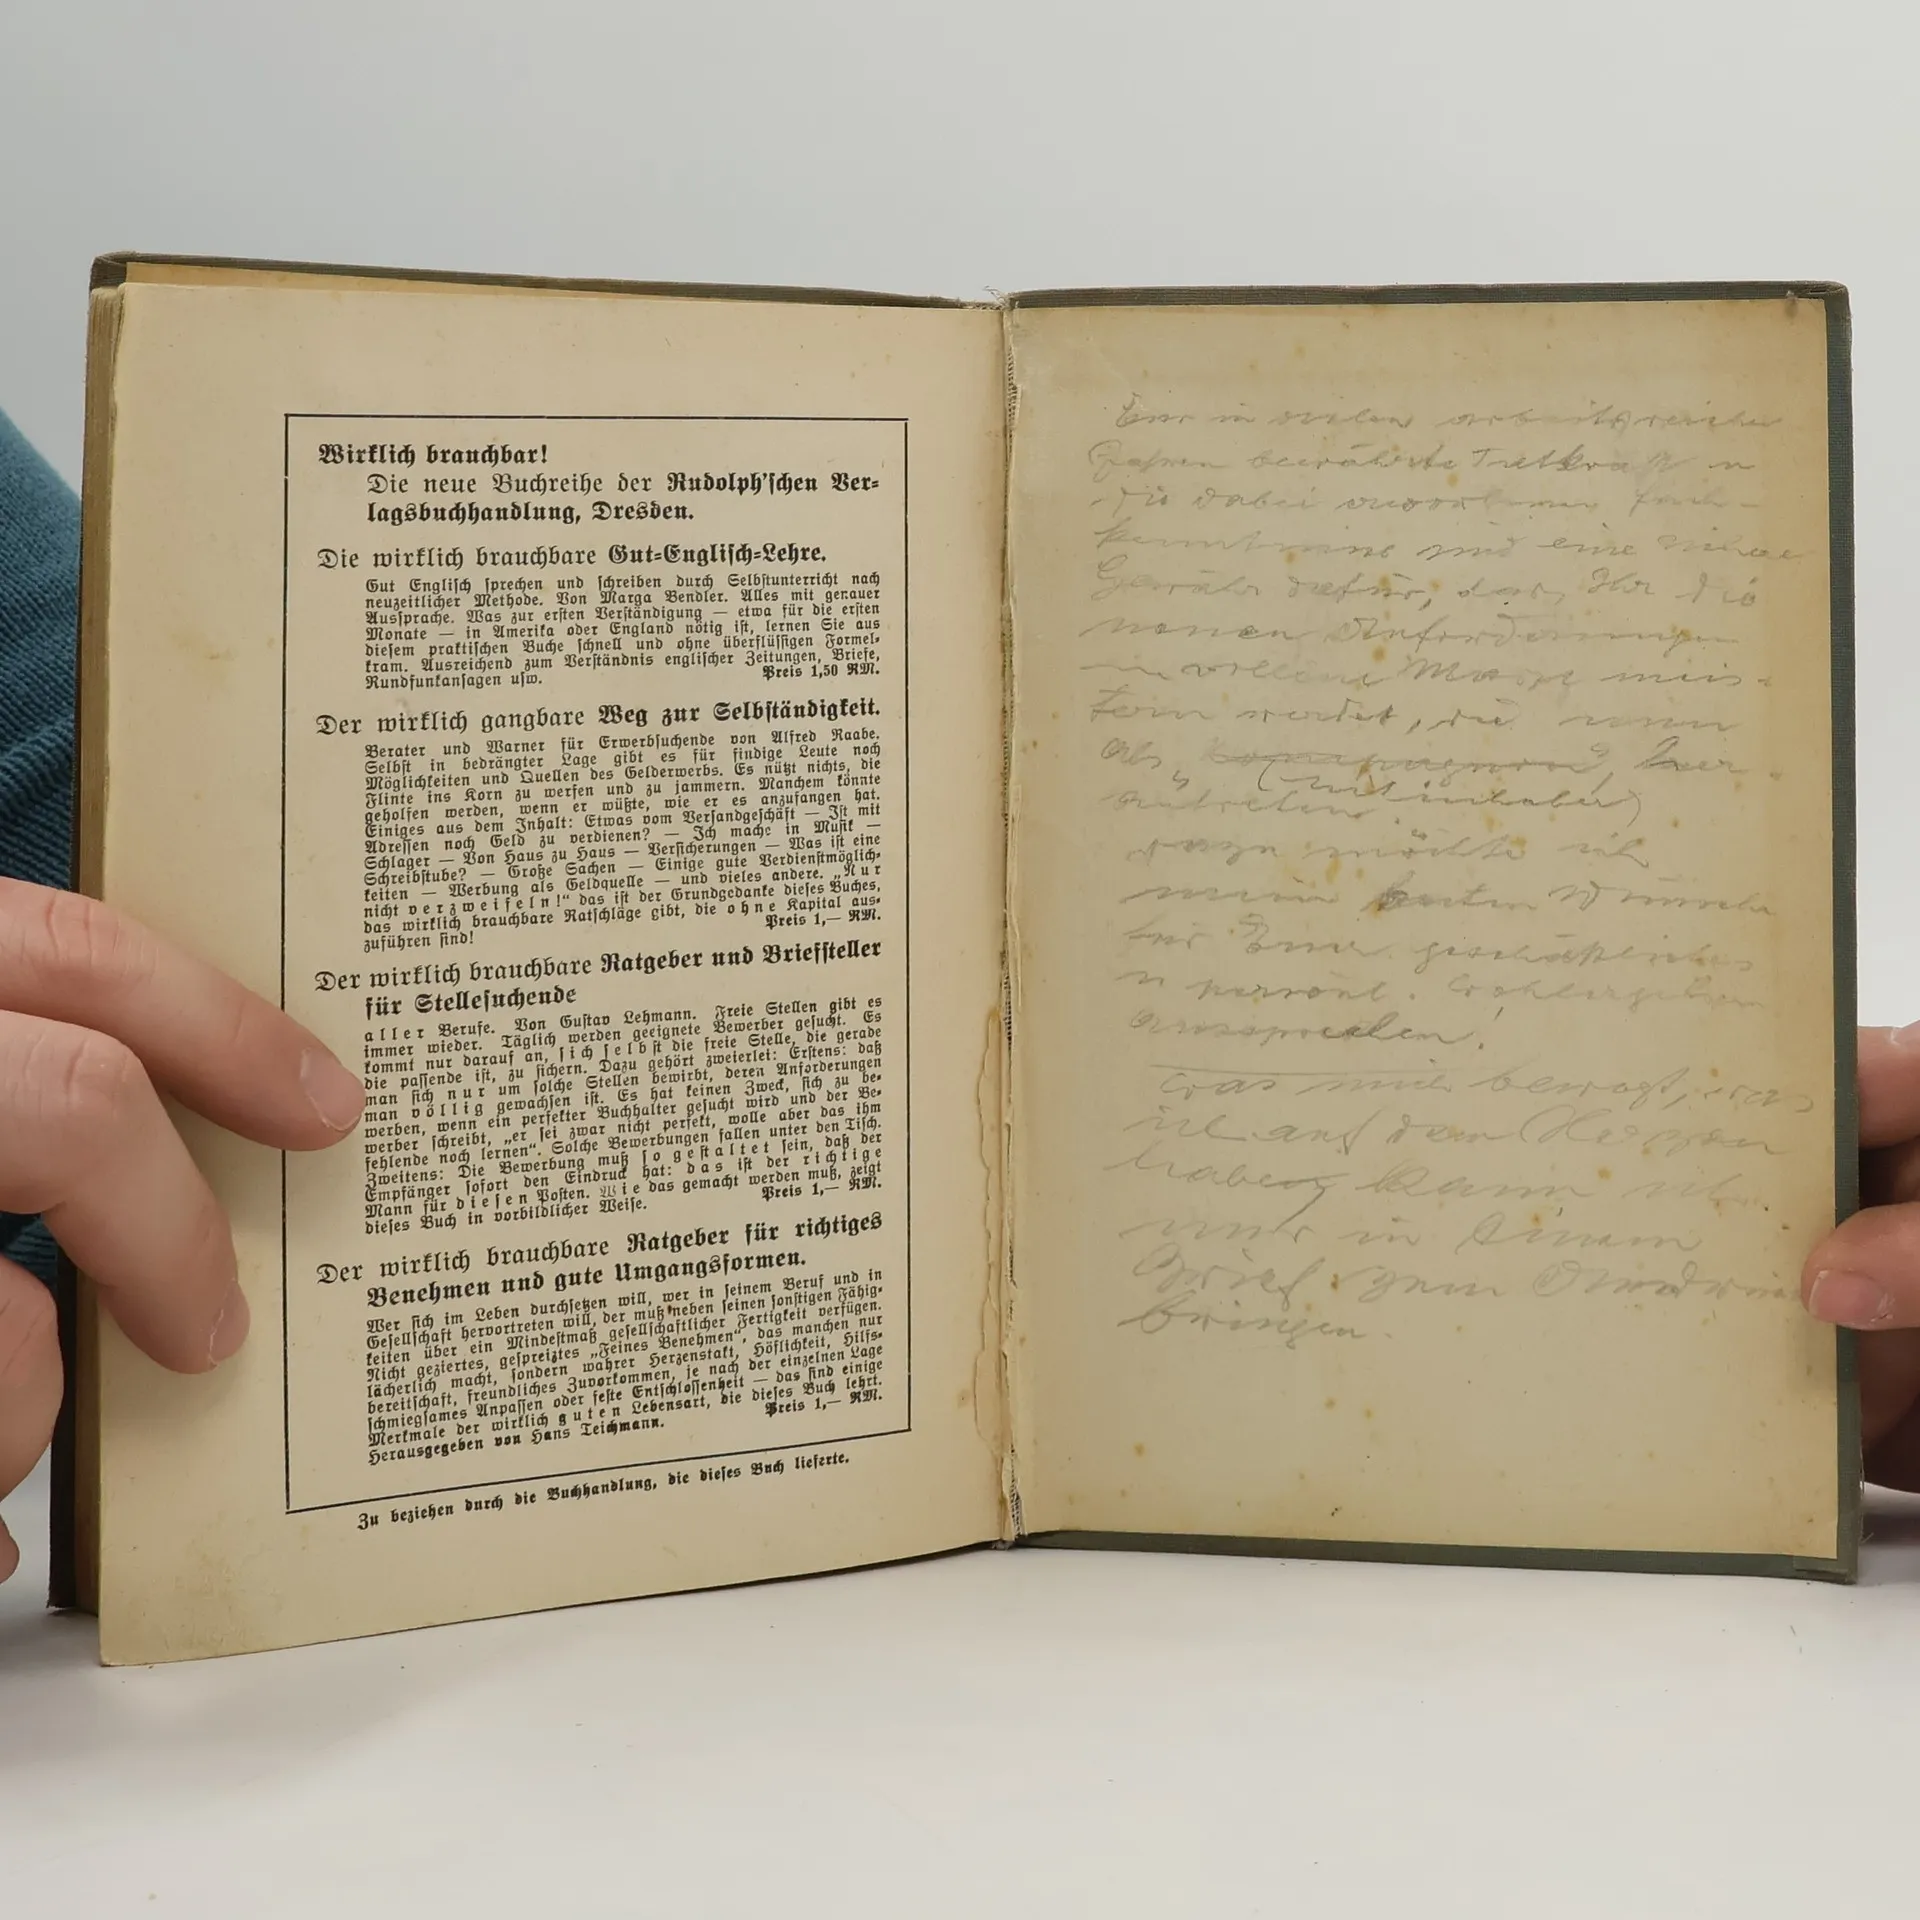 Wirklich brauchbar!
Die neue Buchreihe der Rudolph'schen Ver-
lagsbuchhandlung, Dresden.
Die wirklich brauchbare Gut-Englisch-Lehre.
Gut Englisch sprechen und schreiben durch Selbstunterricht nach
neuzeitlicher Methode. Von Marga Bendler. Alles mit genauer
Aussprache. Was zur ersten Verständigung — etwa für die ersten
Monate — in Amerika oder England nötig ist, lernen Sie aus
diesem praktischen Buche schnell und ohne überflüssigen Formel-
kram. Ausreichend zum Verständnis englischer Zeitungen, Briefe,
Rundfunkansagen usw. Preis 1,50 RM.
Der wirklich gangbare Weg zur Selbständigkeit.
Berater und Warner für Erwerbsuchende von Alfred Raabe.
Selbst in bedrängter Lage gibt es für findige Leute noch
Möglichkeiten und Quellen des Gelderwerbs. Es nützt nichts, die
Flinte ins Korn zu werfen und zu jammern. Manchem könnte
geholfen werden, wenn er wüßte, wie er es anzufangen hat.
Einiges aus dem Inhalt: Etwas vom Versandgeschäft — Ist mit
Adressen noch Geld zu verdienen? — Ich mache in Musik —
Schlager — Von Haus zu Haus — Versicherungen — Was ist eine
Schreibstube? — Große Sachen — Einige gute Verdienstmöglich-
keiten — Werbung als Geldquelle — und vieles andere. „Nur
nicht verzweifeln!“ das ist der Grundgedanke dieses Buches,
das wirklich brauchbare Ratschläge gibt, die ohne Kapital aus-
zuführen sind! Preis 1,— RM.
Der wirklich brauchbare Ratgeber und Briefsteller
für Stellesuchende
aller Berufe. Von Gustav Lehmann. Freie Stellen gibt es
immer wieder. Täglich werden geeignete Bewerber gesucht. Es
kommt nur darauf an, sich selbst die freie Stelle, die gerade
die passende ist, zu sichern. Dazu gehört zweierlei: Erstens: daß
man sich nur um solche Stellen bewirbt, deren Anforderungen
man völlig gewachsen ist. Es hat keinen Zweck, sich zu be-
werben, wenn ein perfekter Buchhalter gesucht wird und der Be-
werber schreibt, „er sei zwar nicht perfekt, wolle aber das ihm
fehlende noch lernen“. Solche Bewerbungen fallen unter den Tisch.
Zweitens: Die Bewerbung muß so gestaltet sein, daß der
Empfänger sofort den Eindruck hat: das ist der richtige
Mann für diesen Posten. Wie das gemacht werden muß, zeigt
dieses Buch in vorbildlicher Weise. Preis 1,— RM.
Der wirklich brauchbare Ratgeber für richtiges
Benehmen und gute Umgangsformen.
Wer sich im Leben durchsetzen will, wer in seinem Beruf und in
Gesellschaft hervortreten will, der muß neben seinen sonstigen Fähig-
keiten über ein Mindestmaß gesellschaftlicher Fertigkeit verfügen.
Nicht geziertes, gespreiztes „Feines Benehmen“, das manchen nur
lächerlich macht, sondern wahrer Herzenstakt, Höflichkeit, Hilfs-
bereitschaft, freundliches Zuvorkommen, je nach der einzelnen Lage
schmiegsames Anpassen oder feste Entschlossenheit — das sind einige
Merkmale der wirklich guten Lebensart, die dieses Buch lehrt.
Herausgegeben von Hans Teichmann. Preis 1,— RM.
Zu beziehen durch die Buchhandlung, die dieses Buch lieferte.
in vielen arbeitsreichen
Jahren bewährte Tatkraft u
die dabei erworbenen Fach-
kenntnisse sind eine sichere
Gewähr dafür, dass Ihr die
neuen Anforderungen
in vollem Masse meis-
tern werdet, die nun
als
(Mitinhaber)
antreten.
dazu möchte ich
meine besten Wünsche
für Euer geschäftliches
u persönl. Wohlergehen
aussprechen!
was mich bewegt, was
ich auf dem Herzen
habe, kann ich
nur in einem
Brief zum Ausdruck
bringen.